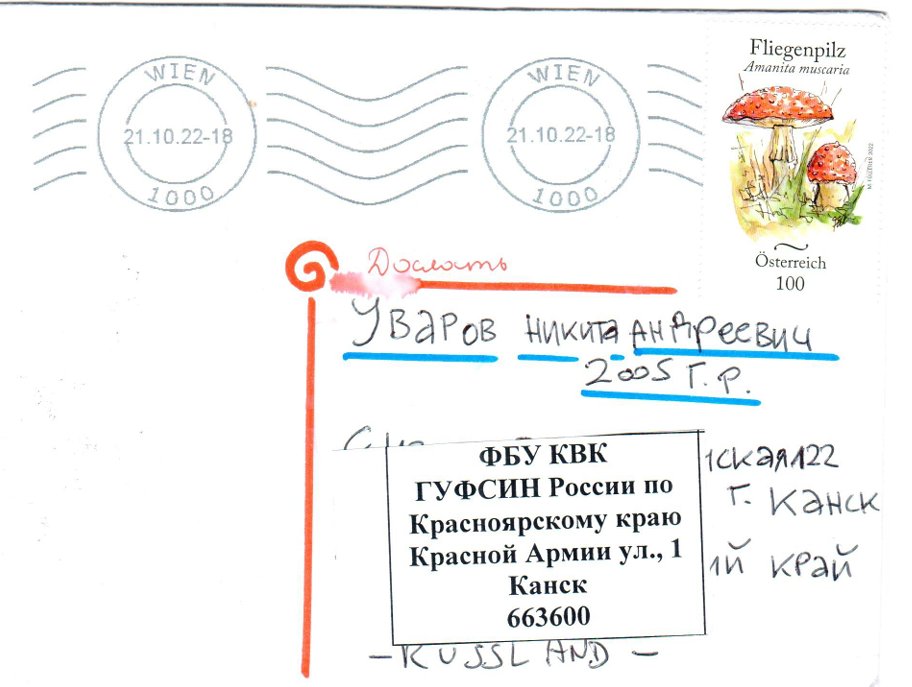 WIEN
21.10.22-18
1000
WIEN
21.10.22-18
1000
Fliegenpilz
Amanita muscaria
Österreich
100
Дослать
Уваров Никита Андреевич
2005 г.р.
ФБУ КВК
ГУФСИН России по
Красноярскому краю
Красной Армии ул., 1
Канск
663600
ская 122
г. Канск
ий край
- RUSSLAND -